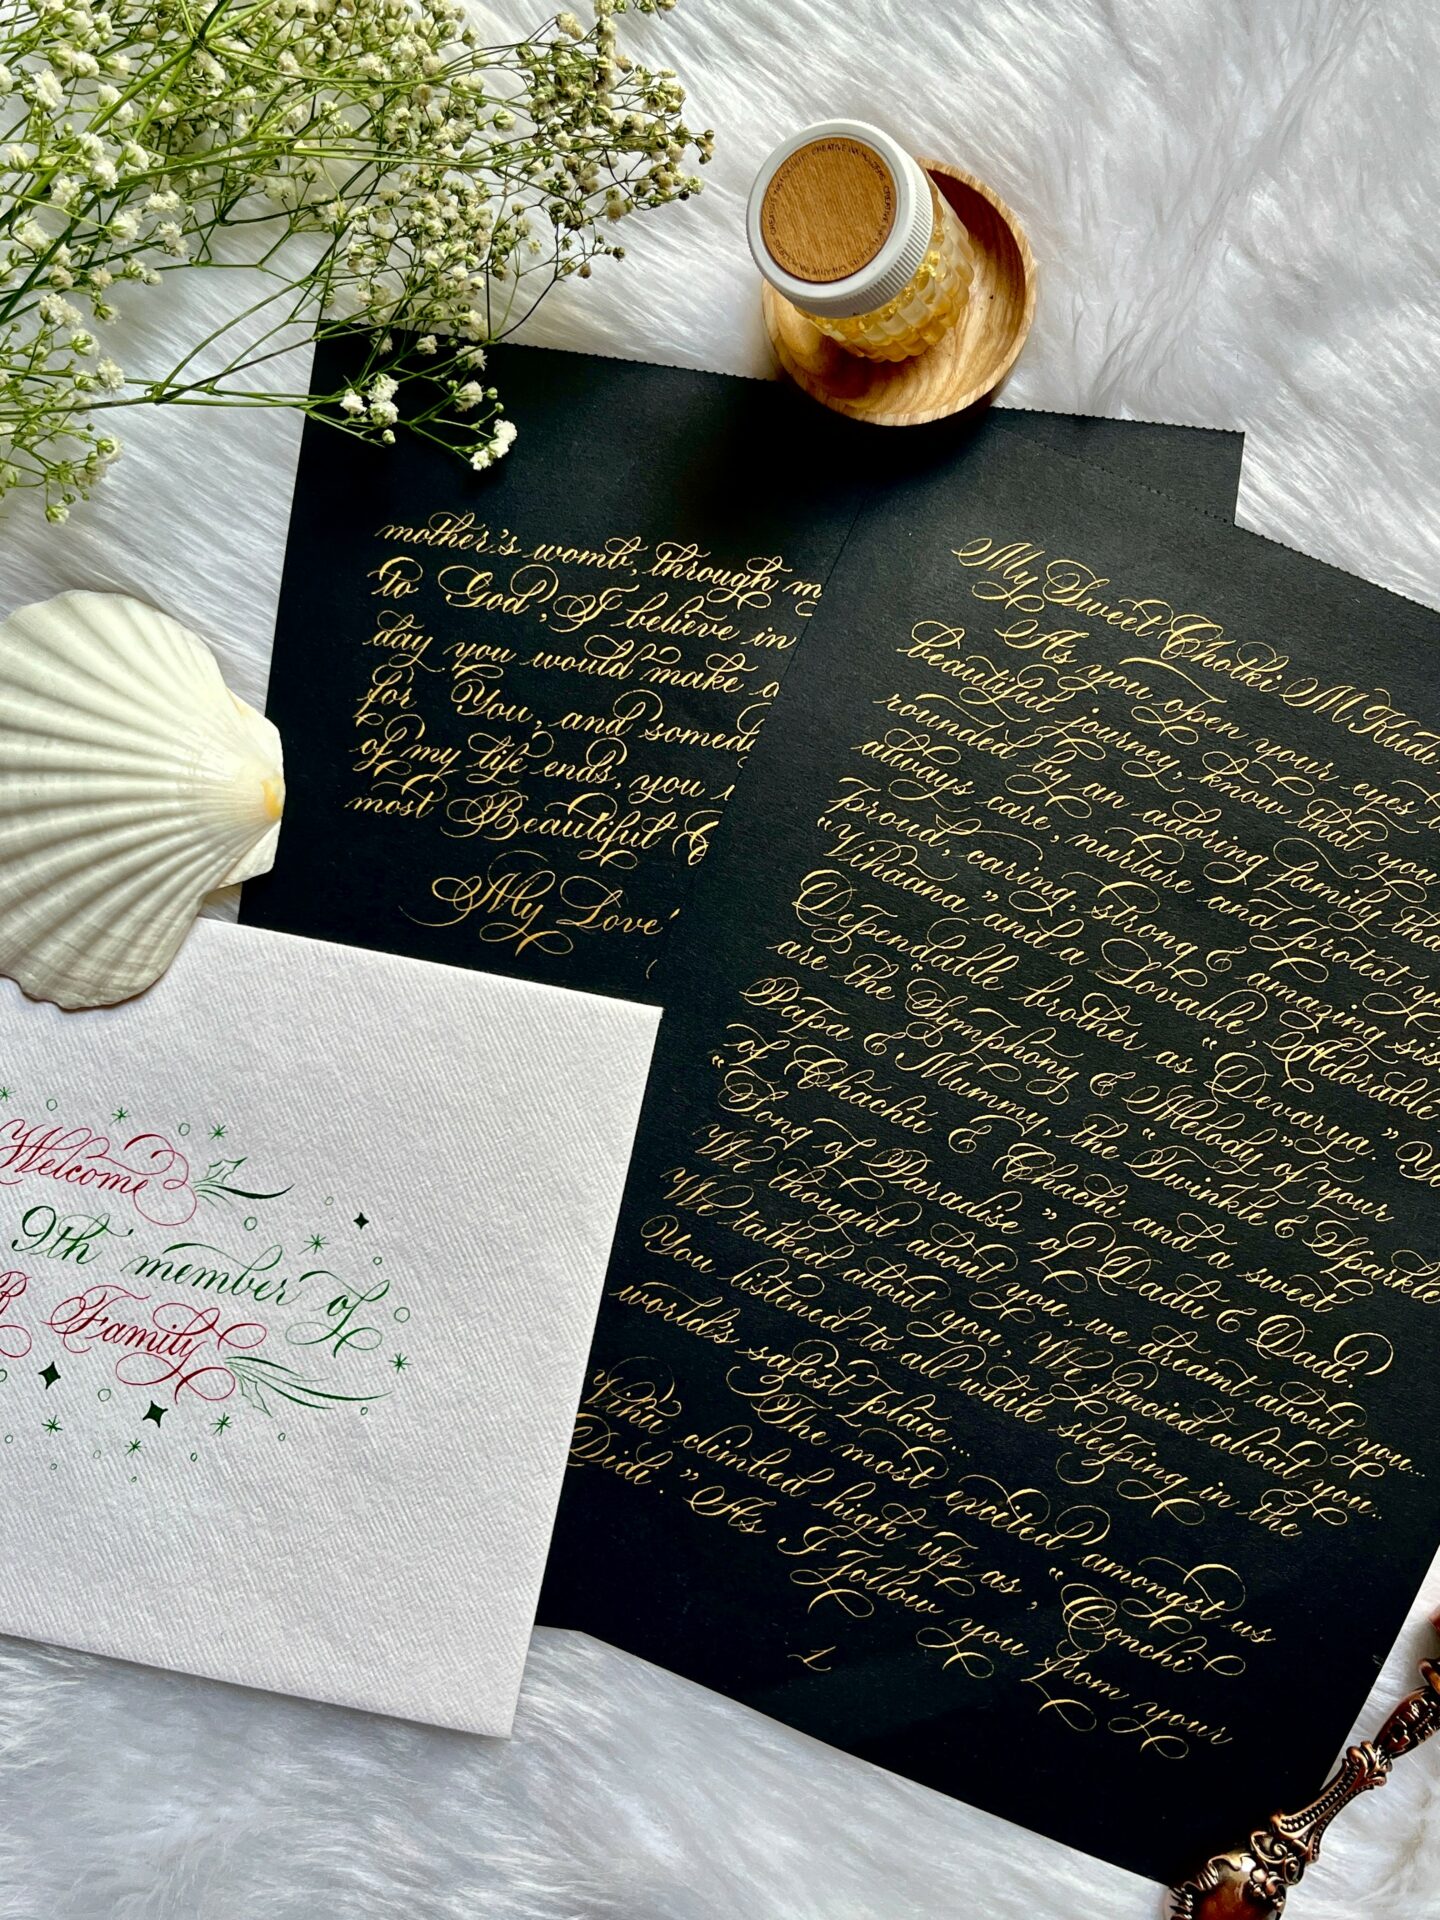 CREATIVE INK HOLDERS
mother's womb, through m
to God, I believe in
day you would make a
for You, and someda
of my life ends, you
most Beautiful
My Love
My Sweet Chotki M. Kuar
As you open your eyes
beautiful journey, know that you
rounded by an adoring family tha
always care, nurture and protect yo
proud, caring, strong & amazing sis
"Vihaana" and a Lovable, Adorable
Dependable brother as "Devarya." Yo
are the "Symphony & Melody" of your
Papa & Mummy, the "Twinkle & Sparkle
of Chachu & Chachi and a sweet
"Song of Paradise" of Dadu & Dadi!
We thought about you, we dreamt about you...
We talked about you, We fancied about you..
You listened to all while sleeping in the
world's safest Place...
The most excited amongst us
Vihu climbed high up as, "Conchi
Didi." As I follow you from your
1
Welcome
9th member of
R Family